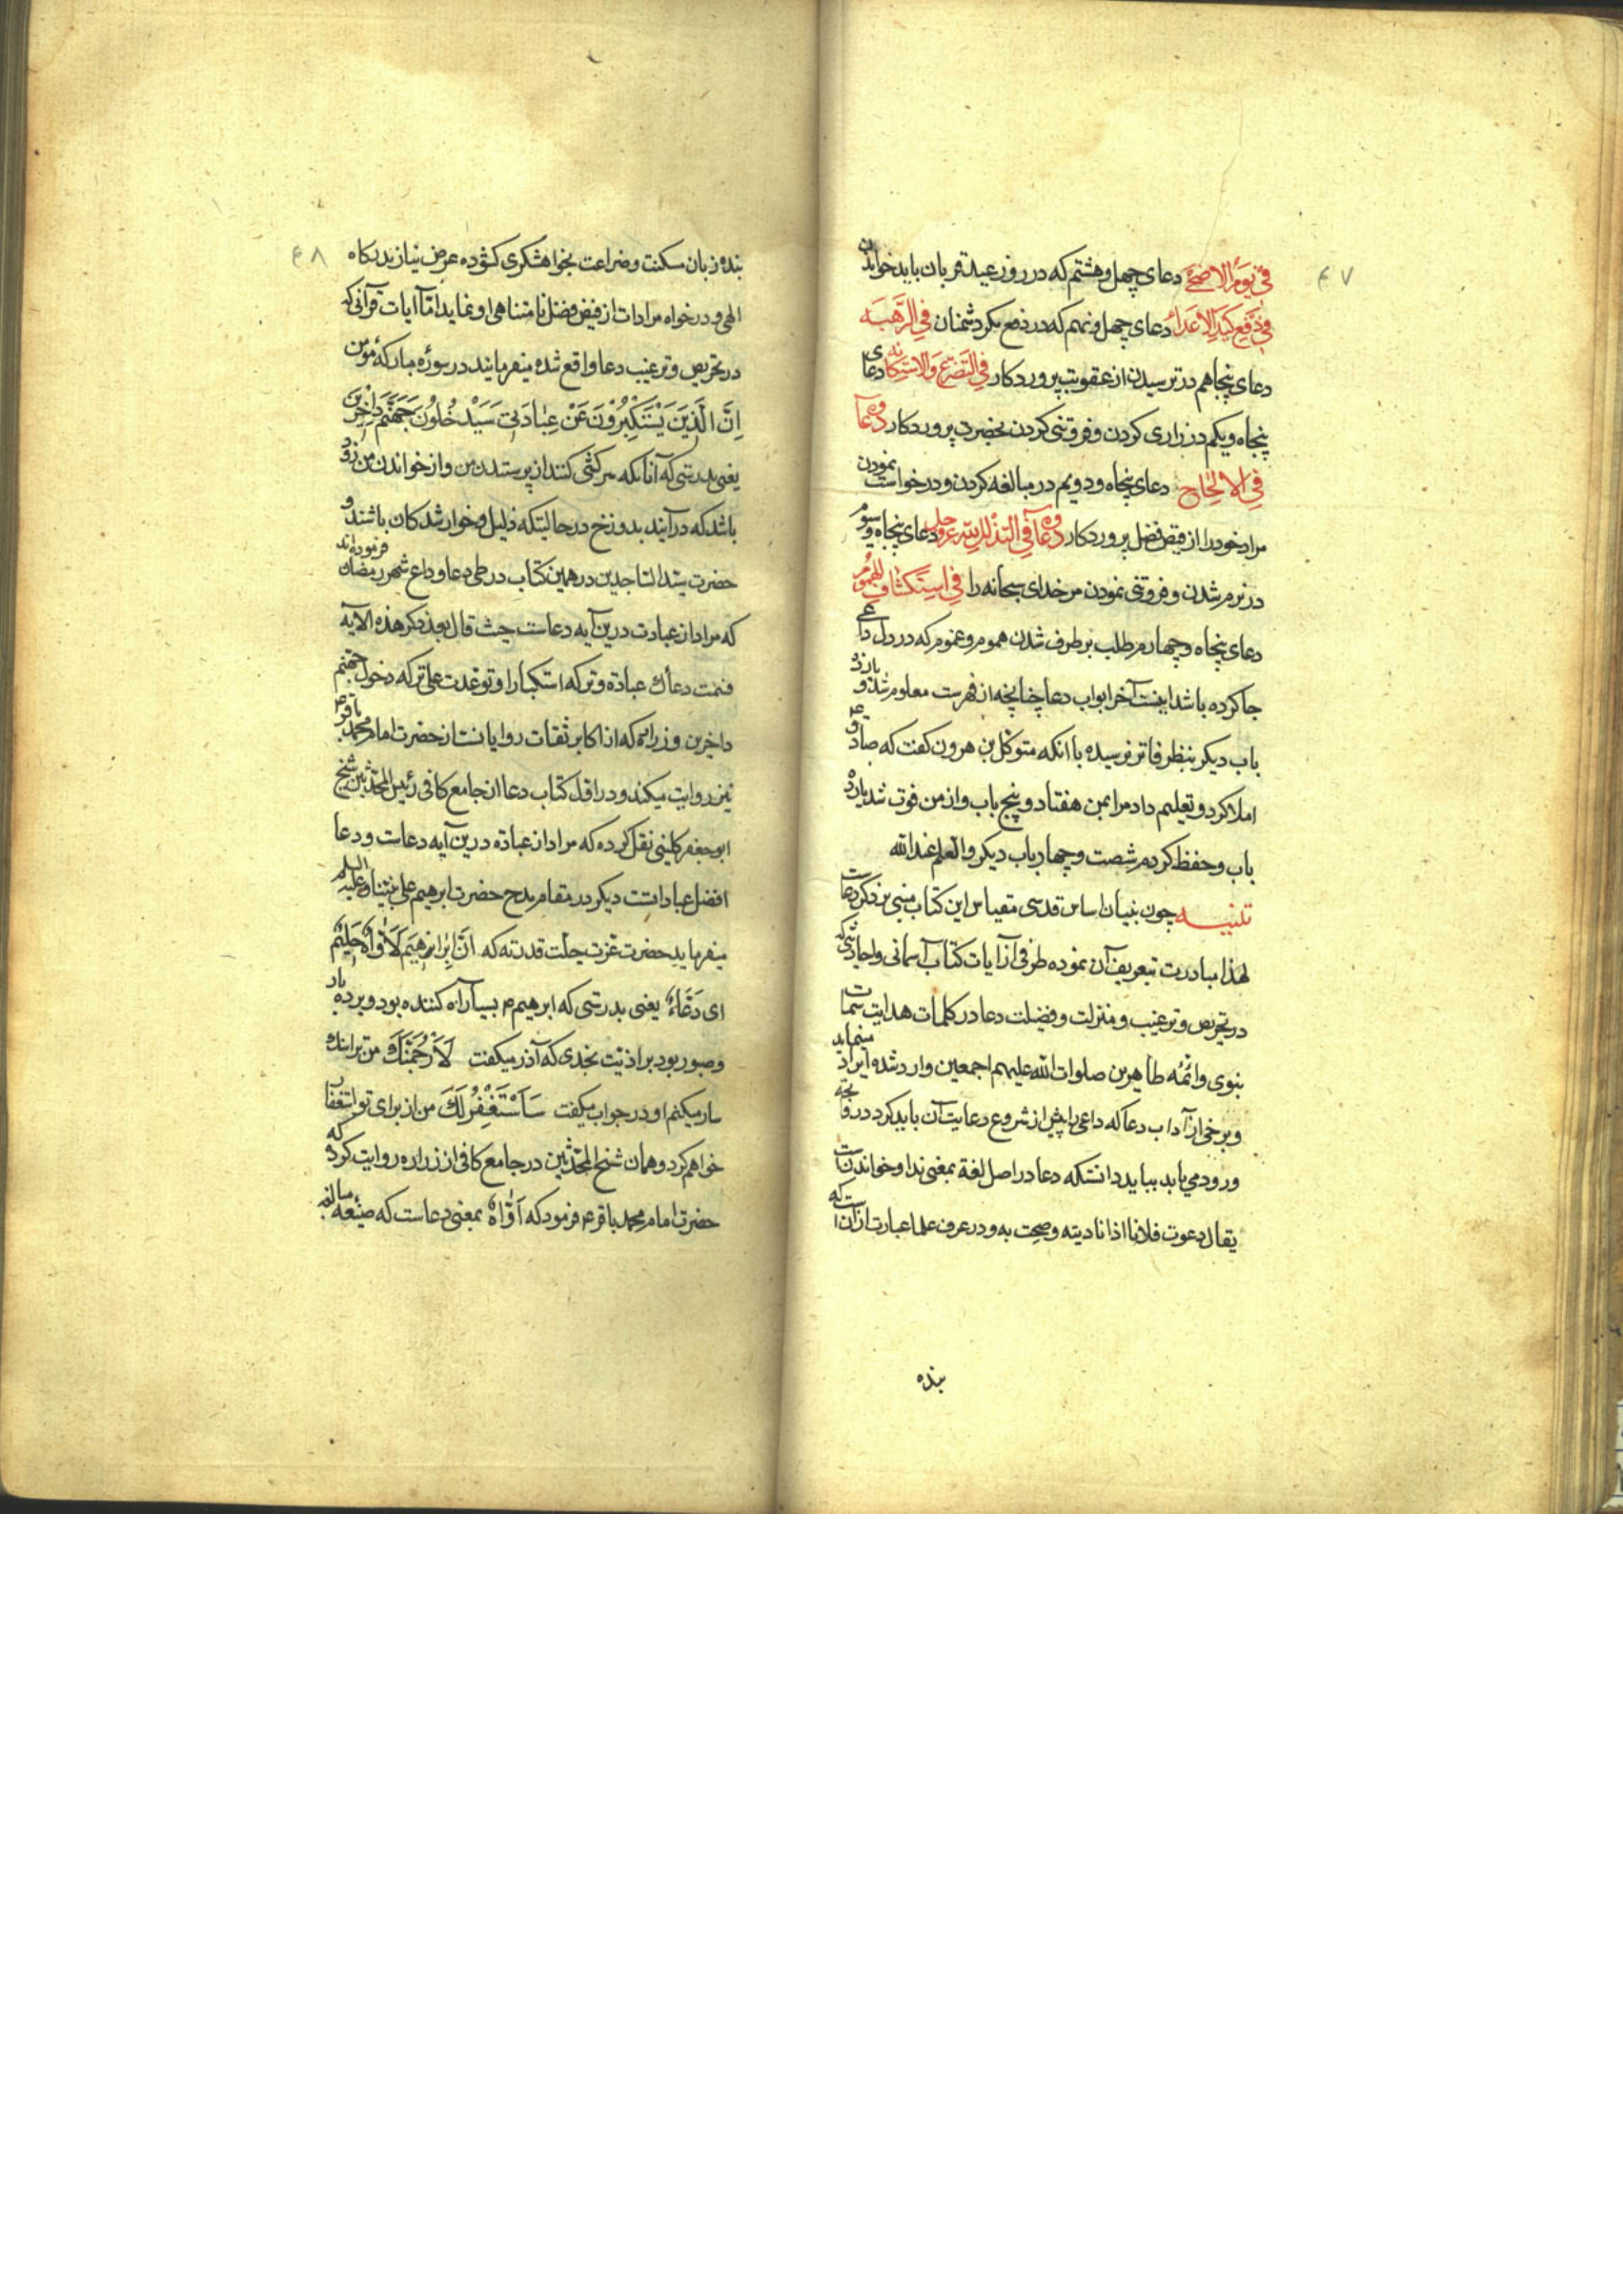 ۴۷
فِي يَوْمِ الاَضْحٰى دعای چهل و هشتم که در روز عید قربان باید خواندن
فِي دَفْعِ كَيْدِ الاَعْدَاءِ دعای چهل و نهم که در دفع مکر دشمنان فِي الرَّهْبَه
دعای پنجاهم در ترسیدن از عقوبت پروردکار فِي التَضَرُّعِ وَالاِسْتِكَانَه دعای
پنجاه و یکم در زاری کردن و فروتنی کردن بحضرت پروردکار دعاؤه
فِي الاِلْحَاحِ دعای پنجاه و دویم در مبالغه کردن و درخواست نمودن
مراد خود را از فیض فضل پروردکار دعاؤه فِي التَذَلُّلِ لِلّٰه عز و جل دعای پنجاه و سوم
در نرم شدن و فروتنی نمودن مر خدای سبحانه را فِي اسْتِكْشَافِ الهُمُوْمِ
دعای پنجاه و چهارم طلب برطرف شدن هموم و غموم که در دل داعی
جا کرده باشد اینست آخر ابواب دعا چنانچه از فهرست معلوم شد و یازده
باب دیکر بنظر فاتر نرسیده با آنکه متوکل بن هرون کفت که صادق ع
املا کرد و تعلیم داد مرا بمن هفتاد و پنج باب و از من فوت شد یازده
باب و حفظ کردم شصت و چهار باب دیکر والعلم عند الله
تنبیـه چون بنیان اساس قدسی مقیاس این کتاب مبنی بر ذکر دعاست
لهذا مبادرت بتعریف آن نموده طرفی از آیات کتاب آسمانی و احادیثی که
در تحریص و ترغیب و منزلت و فضیلت دعا در کلمات هدایت سمات
نبوی و ائمّه طاهرین صلوات الله علیهم اجمعین وارد شده ایراد مینماید
و برخی از آداب دعا که داعی را پیش از شروع رعایت آن باید کرد در فاتحه
ورود می یابد بباید دانست که دعا در اصل لغة بمعنی ندا و خواندنست
یقال دعوت فلانا اذا نادیته و صحت به و در عرف علما عبارت از آنست که
بنده
۴۸
بنده زبان مسکنت و ضراعت بخواهشکری کشوده عرض نیاز بدرکاه
الهی و درخواه مرادات از فیض فضل نامتناهی او نماید امّا آیات قرآنی که
در تحریص و ترغیب دعا واقع شده میفرمایند در سورهٔ مبارکهٔ مؤمن
اِنَّ الَّذِيْنَ يَسْتَكْبِرُوْنَ عَنْ عِبَادَتِيْ سَيَدْخُلُوْنَ جَهَنَّمَ دَاخِرِيْنَ
یعنی بدرستی که آنانکه سرکشی کنند از پرستیدن من و از خواندن من زود
باشد که درآیند بدوزخ در حالتیکه ذلیل و خوار شدکان باشند و
حضرت سید الساجدین در همین کتاب در طی دعا وداع شهر رمضان فرموده‌اند
که مراد از عبادت درین آیه دعاست حیث قال بعد ذکر هذه الآیه
فسمّیت دعاءک عبادة و ترکه استکبارا و توعّدت علی ترکه دخول جهنّم
داخرین و زراره که از اکابر ثقات روایانست از حضرت امام محمد باقر ع
نیز روایت میکند و در اوّل کتاب دعا از جامع کافی رئیس المحدّثین شیخ
ابو جعفر کلینی نقل کرده که مراد از عبادة درین آیه دعاست و دعا
افضل عباداتست دیکر در مقام مدح حضرت ابرهیم علی نبیّنا و علیه السلم
میفرماید حضرت عزت جلّت قدرته که اِنَّ اِبْرَاهِيْمَ لَاَوَّاهٌ حَلِيْمٌ
ای دَعَّاءٌ یعنی بدرستی که ابرهیم م بسیار آه کننده بود و بردبار
و صبور بود بر اذیّت بحدی که آذر میکفت لَاَرْجُمَنَّكَ من ترا سنک
سار میکنم او در جواب میکفت سَاَسْتَغْفِرُ لَكَ من از برای تو استغفار
خواهم کرد و همان شیخ المحدّثین در جامع کافی از زراره روایت کرد که
حضرت امام محمد باقر ع فرمود که اَوّاهٌ بمعنی دعاست که صیغه مبالغه